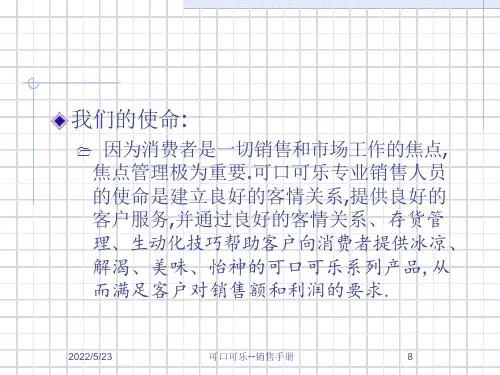 我们的使命:
因为消费者是一切销售和市场工作的焦点,
焦点管理极为重要.可口可乐专业销售人员
的使命是建立良好的客情关系,提供良好的
客户服务,并通过良好的客情关系、存货管
理、生动化技巧帮助客户向消费者提供冰凉、
解渴、美味、怡神的可口可乐系列产品,从
而满足客户对销售额和利润的要求.
2022/5/23
可口可乐--销售手册
8